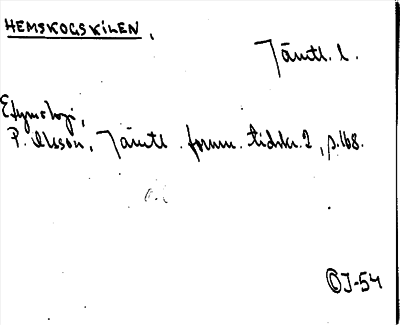 HEMSKOGSKILEN.
Jämtl. l.
Etymologi,
P. Olsson, Jämtl. fornm. tidskr. 2, s. 168.
OJ-54